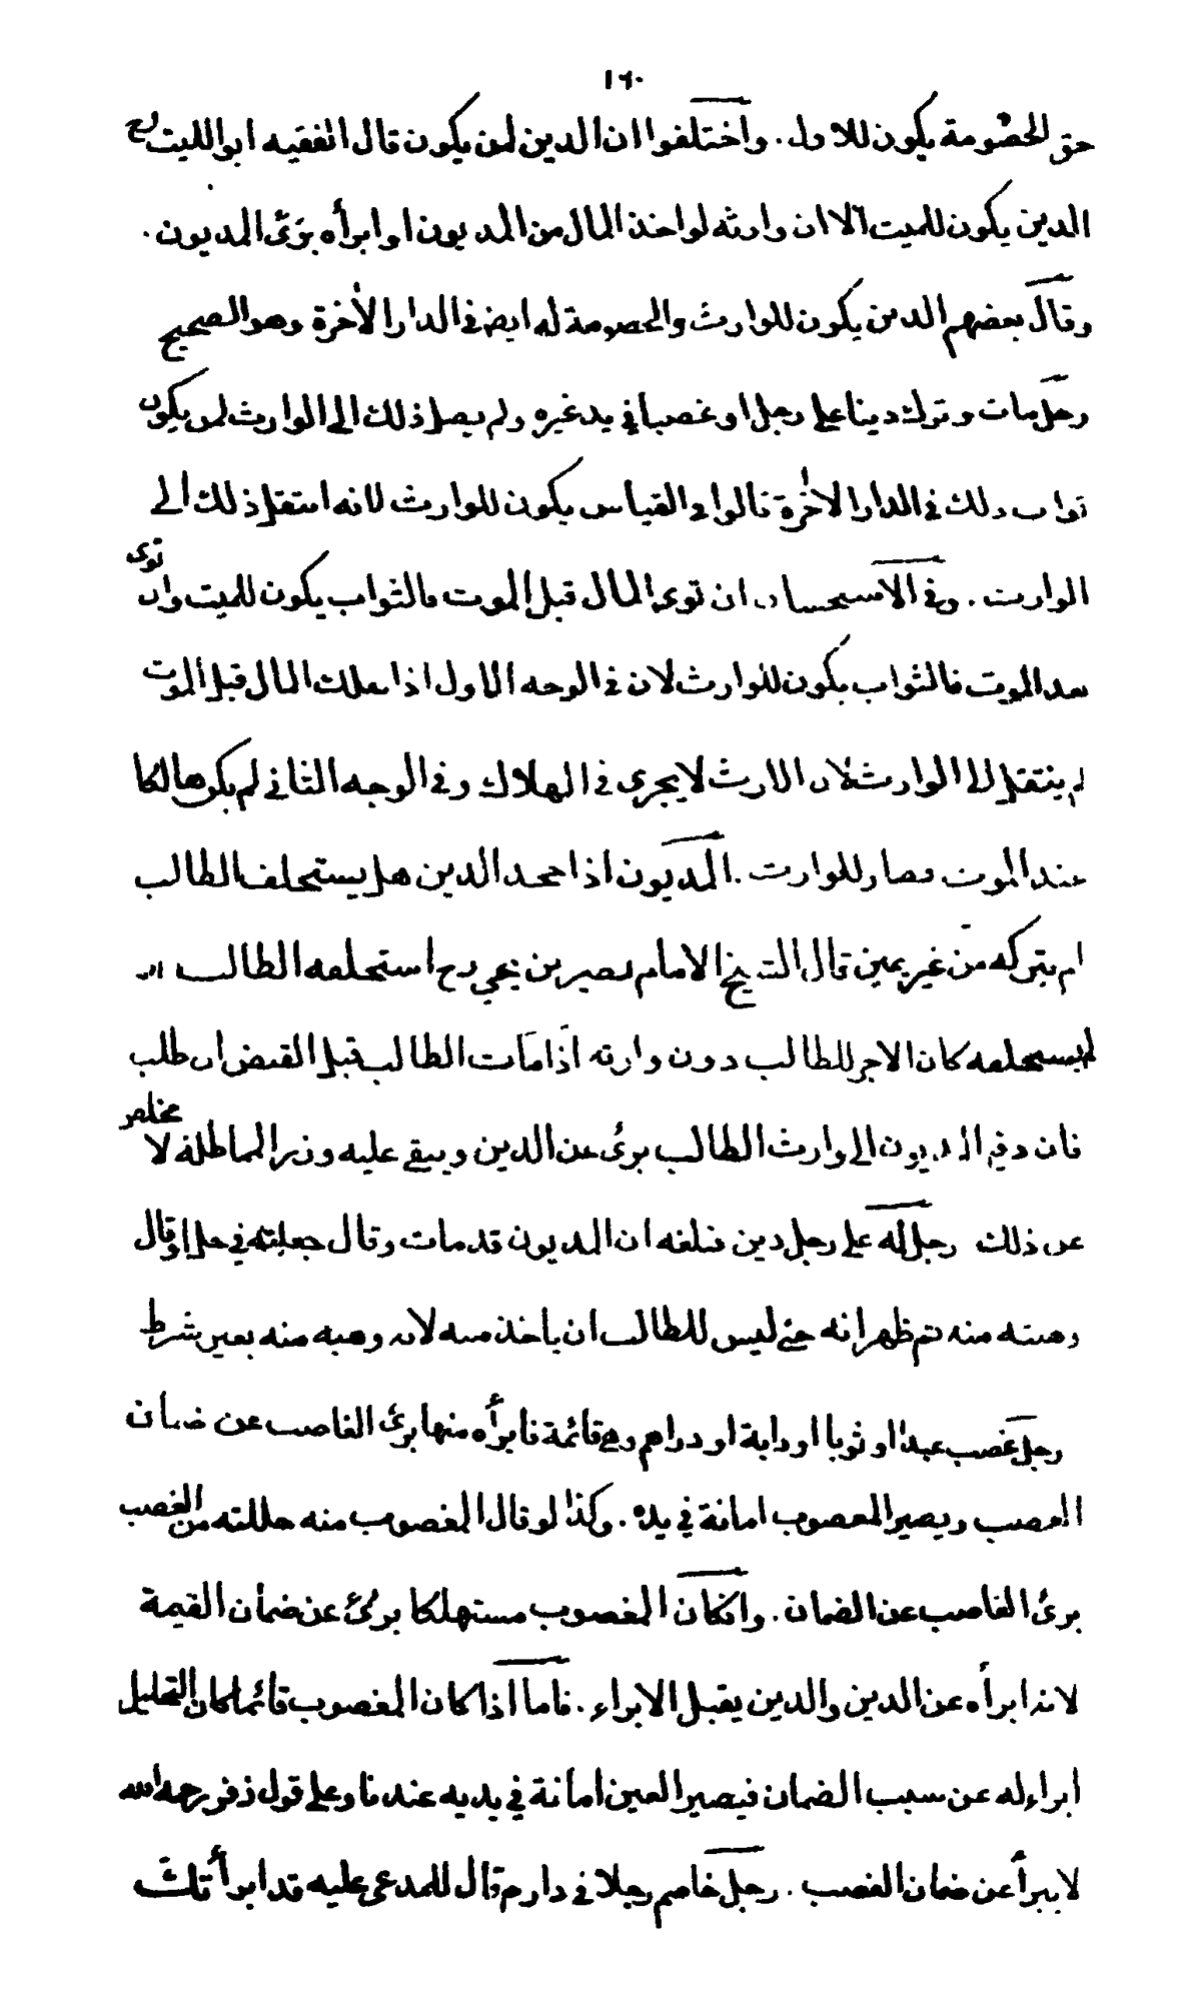 ١٦٠
حق الخصومة يكون للاول . واختلفوا ان الدين لمن يكون قال الفقيه ابو الليث رح
الدين يكون للميت الا ان وارثه لو اخذ المال من المديون او ابرأه برئ المديون .
وقال بعضهم الدين يكون للوارث والخصومة له ايض في الدار الاخرة وهو الصحيح
رجل مات وترك دينا على رجل او غصبا في يد غيره ولم يصل ذلك الى الوارث لمن يكون
ثواب ذلك في الدار الاخرة قالوا في القياس يكون للوارث لانه انتقل ذلك الى
الوارث . وفي الاستحسان ان توى المال قبل الموت فالثواب يكون للميت وان توى
بعد الموت فالثواب يكون للوارث لان في الوجه الاول اذا هلك المال قبل الموت
لم ينتقل الى الوارث لان الارث لا يجرى في الهلاك وفي الوجه الثاني لم يكن هالكا
عند الموت فصار للوارث . المديون اذا جحد الدين هل يستحلف الطالب
ام يتركه من غير يمين قال الشيخ الامام نصير بن يحي رح استحلفه الطالب او
لم يستحلفه كان الاجر للطالب دون وارثه اذا مات الطالب قبل القبض ان طلب
فان دفع المديون الى وارث الطالب برئ عن الدين ويبقى عليه وزر المماطلة لا مخلص
عن ذلك رجل له على رجل دين فبلغه ان المديون قد مات وقال جعلته في حل او قال
وهبته منه ثم ظهر انه حي ليس للطالب ان ياخذ منه لانه وهبه منه بغير شرط
رجل غصب عبدا او ثوبا او دابة او دراهم وهي قائمة فابرأه منها برئ الغاصب عن ضمان
الغصب ويصير المغصوب امانة في يده . وكذا لو قال المغصوب منه حللته من الغصب
برئ الغاصب عن الضمان . وانكان المغصوب مستهلكا برئ عن ضمان القيمة
لانه ابرأه عن الدين والدين يقبل الابراء . فاما اذا كان المغصوب قائما كان التحليل
ابراء له عن سبب الضمان فيصير العين امانة في يديه عندنا وعلى قول زفر رحمه الله
لا يبرأ عن ضمان الغصب . رجل خاصم رجلا في دار م قال للمدعى عليه قد ابرأتك